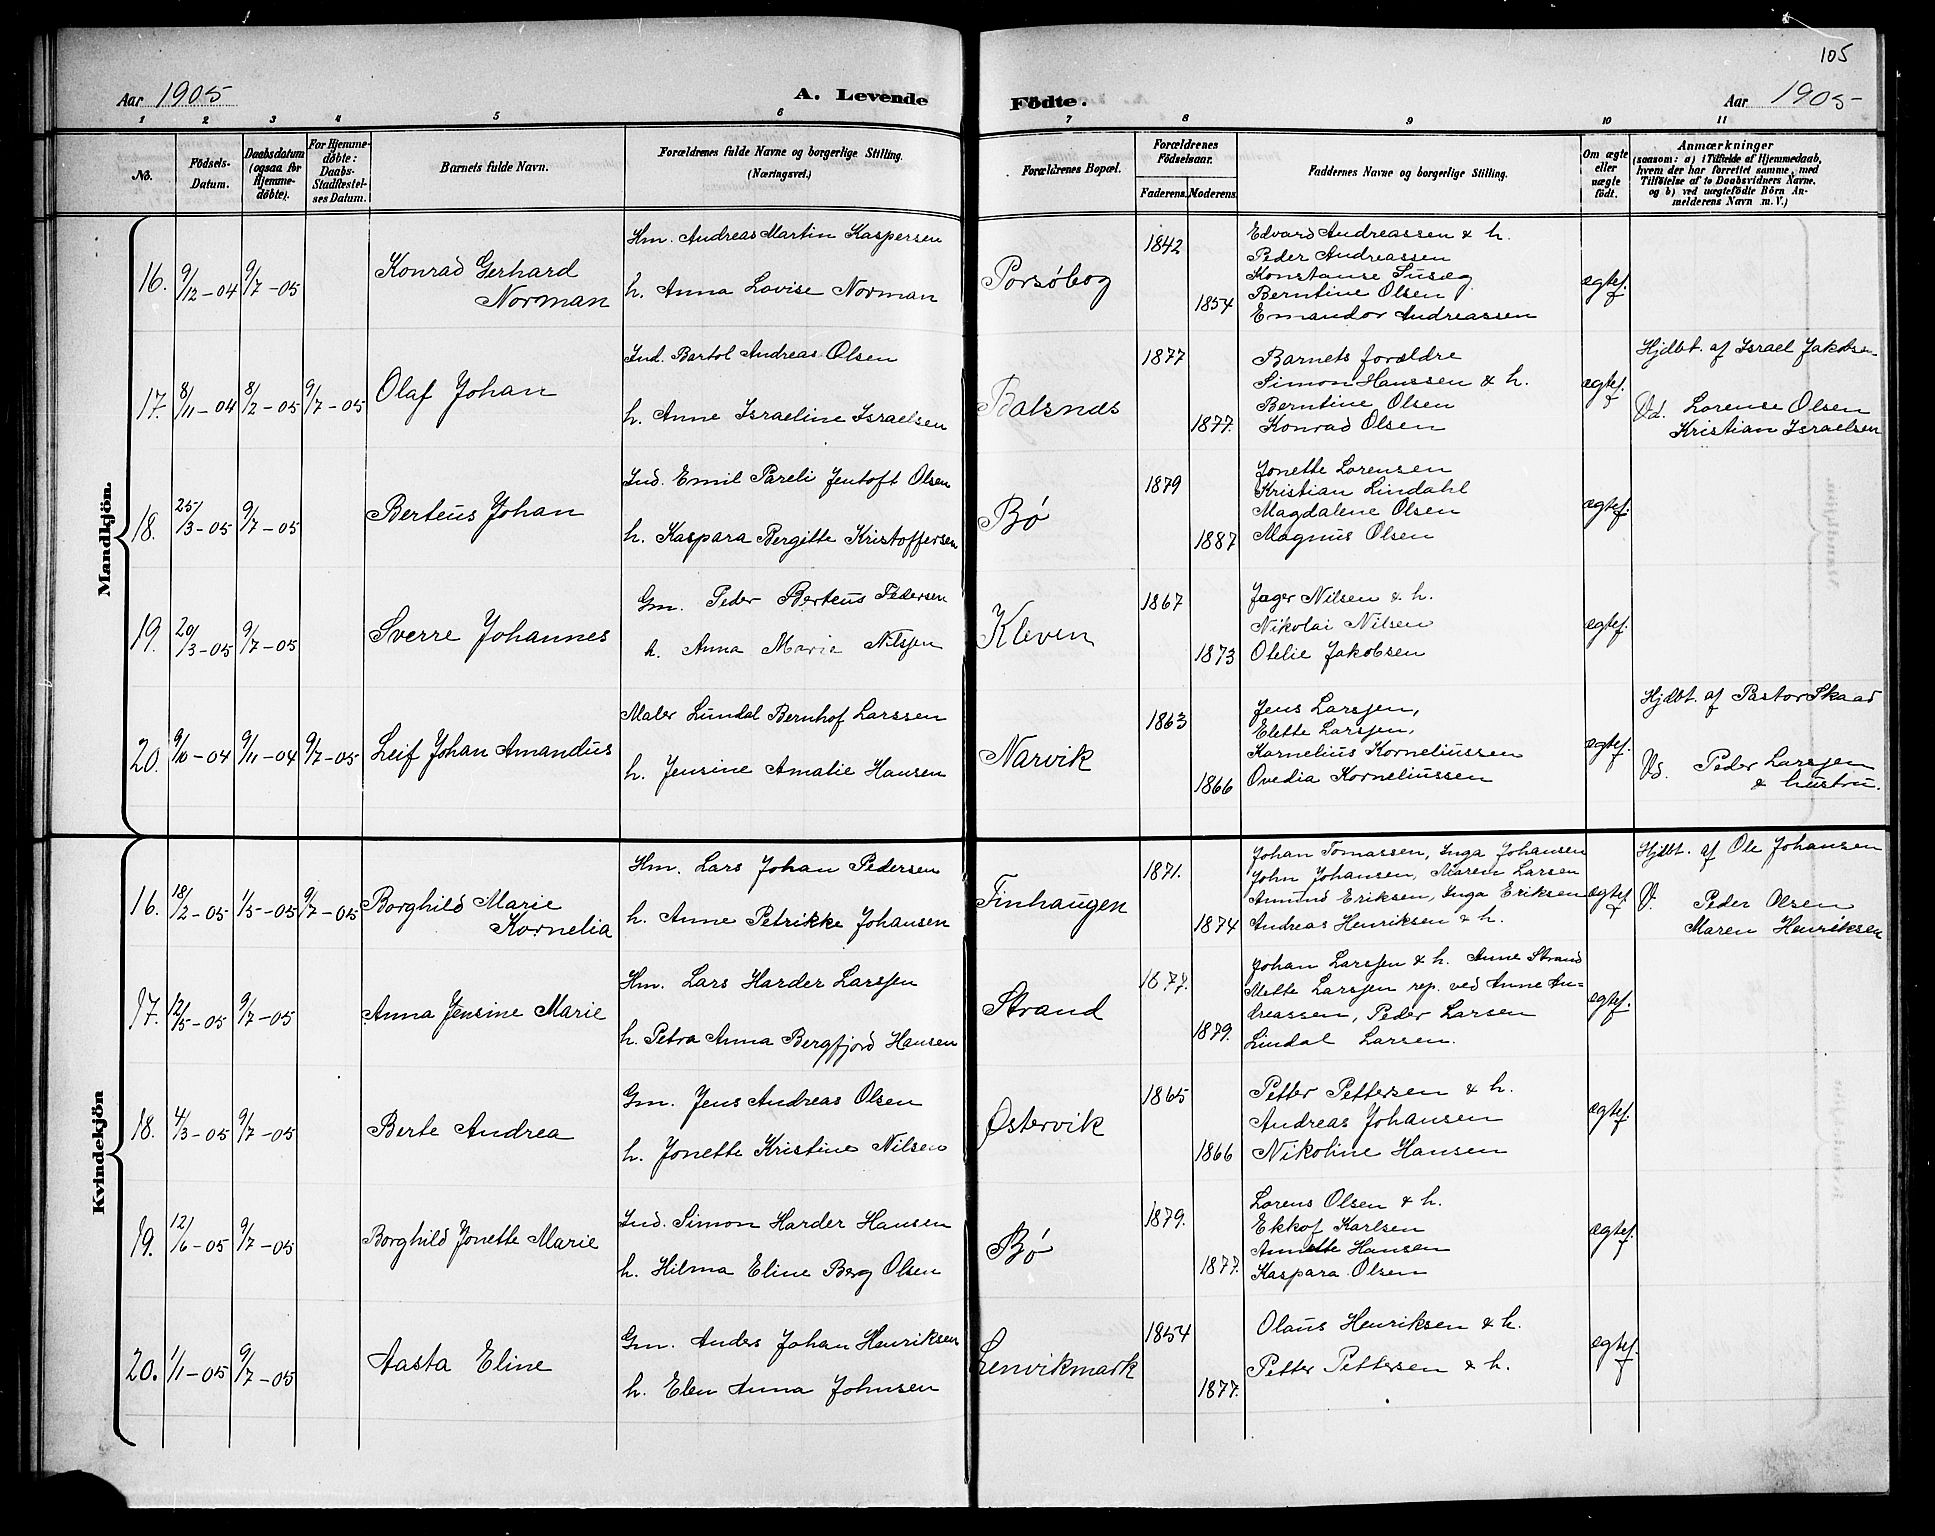 105
Aar 1905 A. Levende Födte. Aar 1905
1 2 3 4 5 6 7 8 9 10 11
No. Födsels-Datum. Daabsdatum (ogsaa for Hjemmedøbte). For Hjemmedøbte: Daabs-Stadfæstelses Datum. Barnets fulde Navn. Forældrenes fulde Navne og borgerlige Stilling. (Næringsvei.) Forældrenes Bopæl. Forældrenes Födselsaar. Faderens. Moderens. Faddernes Navne og borgerlige Stilling. Om ægte eller uægte födt. Anmærkninger (saasom: a) i Tilfælde af Hjemmedaab, hvem der har forrettet samme, med Tilföielse af to Daabsvidners Navne, og b) ved uægtefödte Börn Anmelderens Navn m. V.)
Mandkjön.
16. 9/12-04 9/7-05 Konrad Gerhard Norman
Hm. Andreas Martin Kaspersen
h. Anna Lovise Norman
Porsøbog 1842 1854
Edvard Andreassen & h.
Peder Andreassen
Konstanse Susæg
Berntine Olsen
Emandor Andreassen
ægtef.
17. 8/11-04 8/2-05 9/7-05 Olaf Johan
Ind. Bartol Andreas Olsen
h. Anne Israeline Israelsen
Balsnes 1877 1877.
Barnets forældre
Simon Hanssen & h.
Berntine Olsen
Konrad Olsen
ægtef.
Hjdbt. af Israel Jakobsen
Vd. Lorense Olsen
Kristian Israelsen
18. 25/3-05 9/7-05 Berteus Johan
Ind. Emil Pareli Jentoft Olsen
h. Kaspara Bergitte Kristoffersen
Bø 1879 1887
Jonette Lorensen
Kristian Lindahl
Magdalene Olsen
Magnus Olsen
ægtef.
19. 20/3-05 9/7-05 Sverre Johannes
Gm. Peder Berteus Pedersen
h. Anna Marie Nilssen
Kleven 1867 1873
Jager Nilsen & h.
Nikolai Nilsen
Otelie Jakobsen
ægtef.
20. 9/10-04 9/11-04 9/7-05 Leif Johan Amandus
Maler Lundal Bernhof Larssen
h. Jensine Amalie Hansen
Narvik 1863 1866
Jens Larssen,
Elette Larssen,
Kornelius Korneliussen
Ovedia Korneliussen
ægtef.
Hjdbt. af Pastor Skaar
Vd. Peder Larssen
& hustru.
Kvindekjön
16. 18/2-05 1/5-05 9/7-05 Borghild Marie Kornelia
Hm. Lars Johan Pedersen
h. Anne Petrikke Johansen
Finhaugen 1871. 1874
Johan Tomassen, Inga Johansen
John Johansen, Maren Larsen
Amund Eriksen, Inga Eriksen
Andreas Henriksen & h.
ægtef.
Hjdbt. af Ole Johansen
V. Peder Olsen
Maren Henriksen
17. 12/5-05 9/7-05 Anna Jensine Marie
Hm. Lars Harder Larssen
h. Petra Anna Bergfjord Hansen
Strand 1877. 1879.
Johan Larssen & h. Anne Strand
Mette Larssen rep. ved Anne An-
dreassen, Peder Larsen
Lindal Larsen.
ægtef.
18. 4/3-05 9/7-05 Berte Andrea
Gm. Jens Andreas Olsen
h. Jonette Kristine Nilsen
Østervik 1865 1866
Petter Pettersen & h.
Andreas Johansen
Nikoline Hansen
ægtef.
19. 12/6-05 9/7-05 Borghild Jonette Marie
Ind. Simon Harder Hansen
h. Hilma Eline Berg Olsen
Bø 1879. 1877.
Lorens Olsen & h.
Ekkof Karlsen
Annette Hansen
Kaspara Olsen
ægtef.
20. 1/1-05 9/7-05 Aasta Eline
Gm. Anders Johan Henriksen
h. Elen Anna Johnsen
Lenvikmark 1854 1877.
Olaus Henriksen & h.
Petter Pettersen & h.
ægtef.